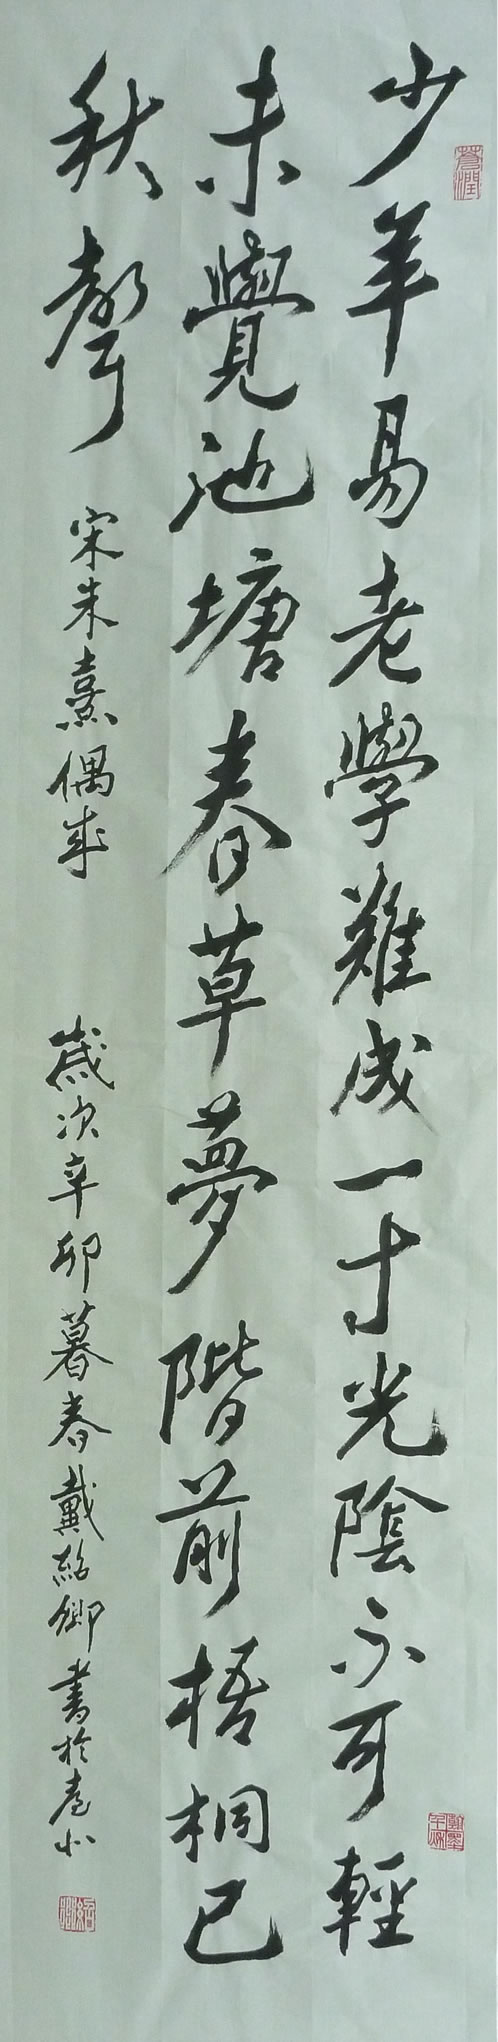 少年易老學難成一寸光陰不可輕
未覺池塘春草夢階前梧桐已
秋聲
宋朱熹偶成
歲次辛卯暮春戴紹卿書於臺北